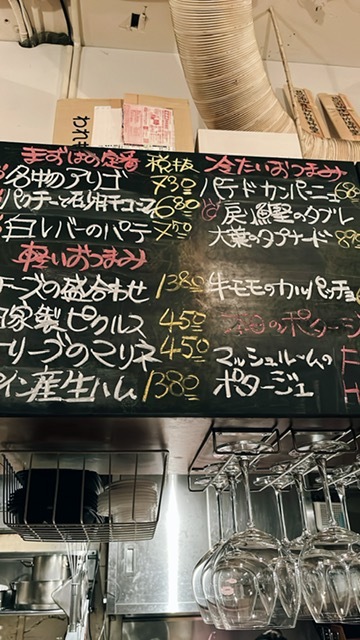 まずはの定番 税抜
名物アリゴ 730
パテ
680
白レバーのパテ 750
軽いおつまみ
チーズの盛合わせ 1380
自家製ピクルス 450
オリーブのマリネ 450
イン産生ハム 1380
冷たいおつまみ
パテドカンパーニュ 68
戻り鰹のタブレ
大葉のタプナード 880
牛モモのカルパッチョ
本日のポタージ
マッシュルームの
ポタージュ
われも